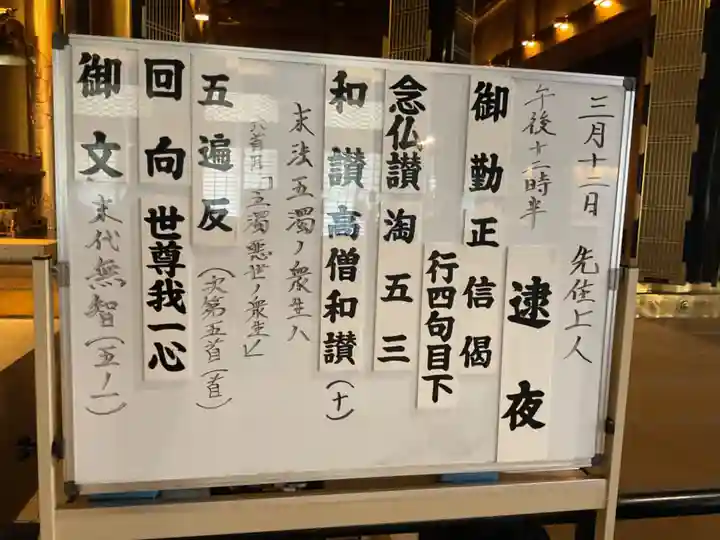 三月十二日 先住上人
午後十二時半 逮夜
御勤 正信偈
行四句目下
念仏讃 淘五三
和讃 高僧和讃(十)
末法五濁ノ衆生ハ
六首目「五濁悪世ノ衆生」
五遍反(次第五首)
回向 世尊我一心
御文 末代無智(五ノ一)